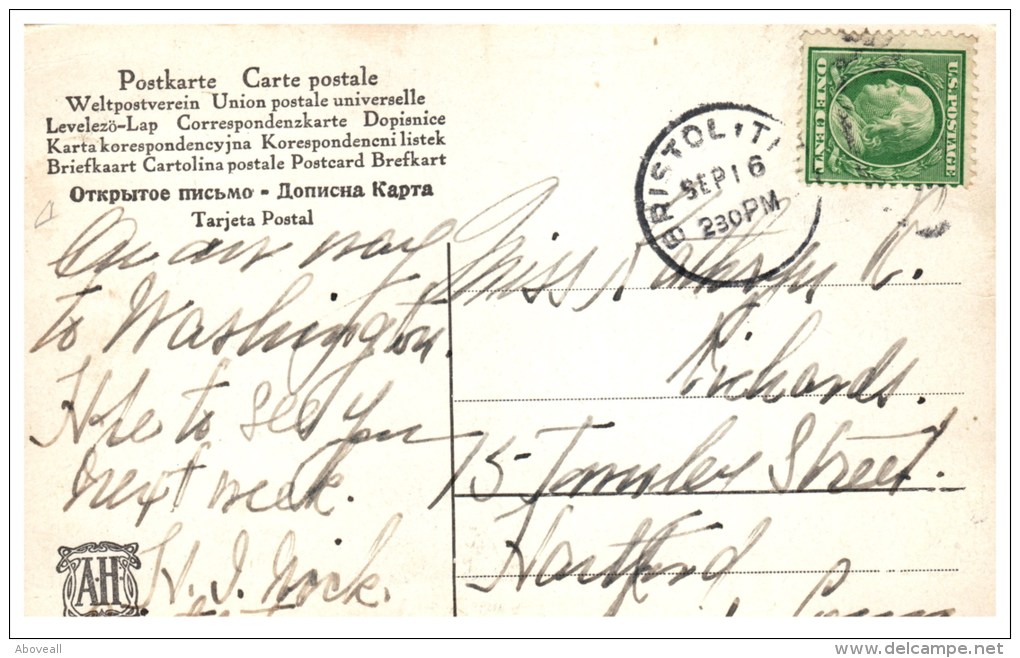 Postkarte Carte postale
Weltpostverein Union postale universelle
Levelezö-Lap Correspondenzkarte Dopisnice
Karta korespondencyjna Korespondencni listek
Briefkaart Cartolina postale Postcard Brefkart
Открытое письмо - Дописна Карта
Tarjeta Postal
On our way
to Washington.
Hope to see you
next week.
H. J.
A·H
BRISTOL, T
SEP 16
2 30 PM
U.S. POSTAGE
ONE CENT
Miss Kathryn C.
Richards.
15 Townley Street.
Hartford
Conn
Aboveall
delcampe.net